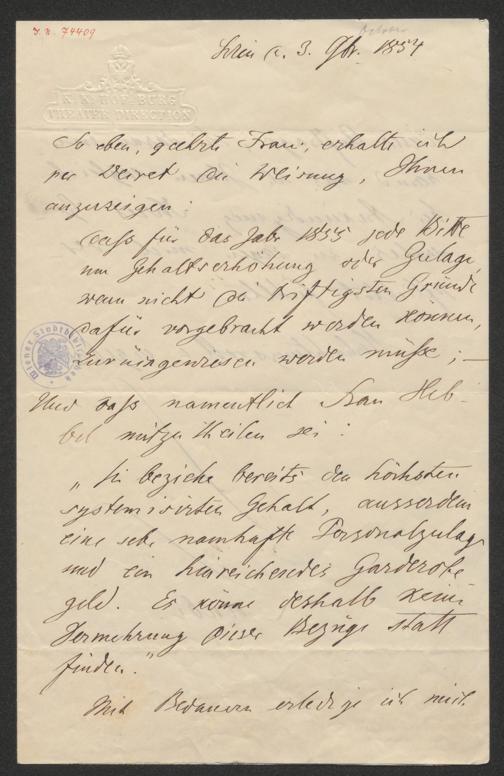 I. N. 74409
October
Wien d. 3. 8br. 1854
K. K. HOF-BURG
THEATER DIRECTION
So eben, geehrte Frau, erhalte ich
per Decret die Weisung, Ihnen
anzuzeigen:
dass für das Jahr 1855 jede Bitte
um Gehaltserhöhung oder Zulage,
wenn nicht die triftigsten Gründe
dafür vorgebracht werden können,
zurückgewiesen werden müsse; —
Und dass namentlich Frau Heb-
bel mitzutheilen sei:
„Sie beziehe bereits den höchsten
systemisirten Gehalt, ausserdem
eine sehr namhafte Personalzulage
und ein hinreichendes Garderobe
geld. Es könne deshalb keine
Vermehrung dieser Bezüge statt
finden.“
Mit Bedauern erledige ich mich